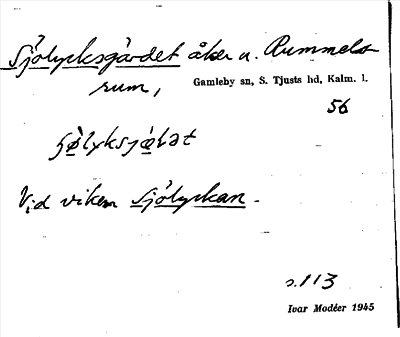 Sjölycksgärdet åker u. Rummels-
rum, Gamleby sn, S. Tjusts hd, Kalm. l.
56
Vid viken Sjölyckan.
s. 113
Ivar Modéer 1945